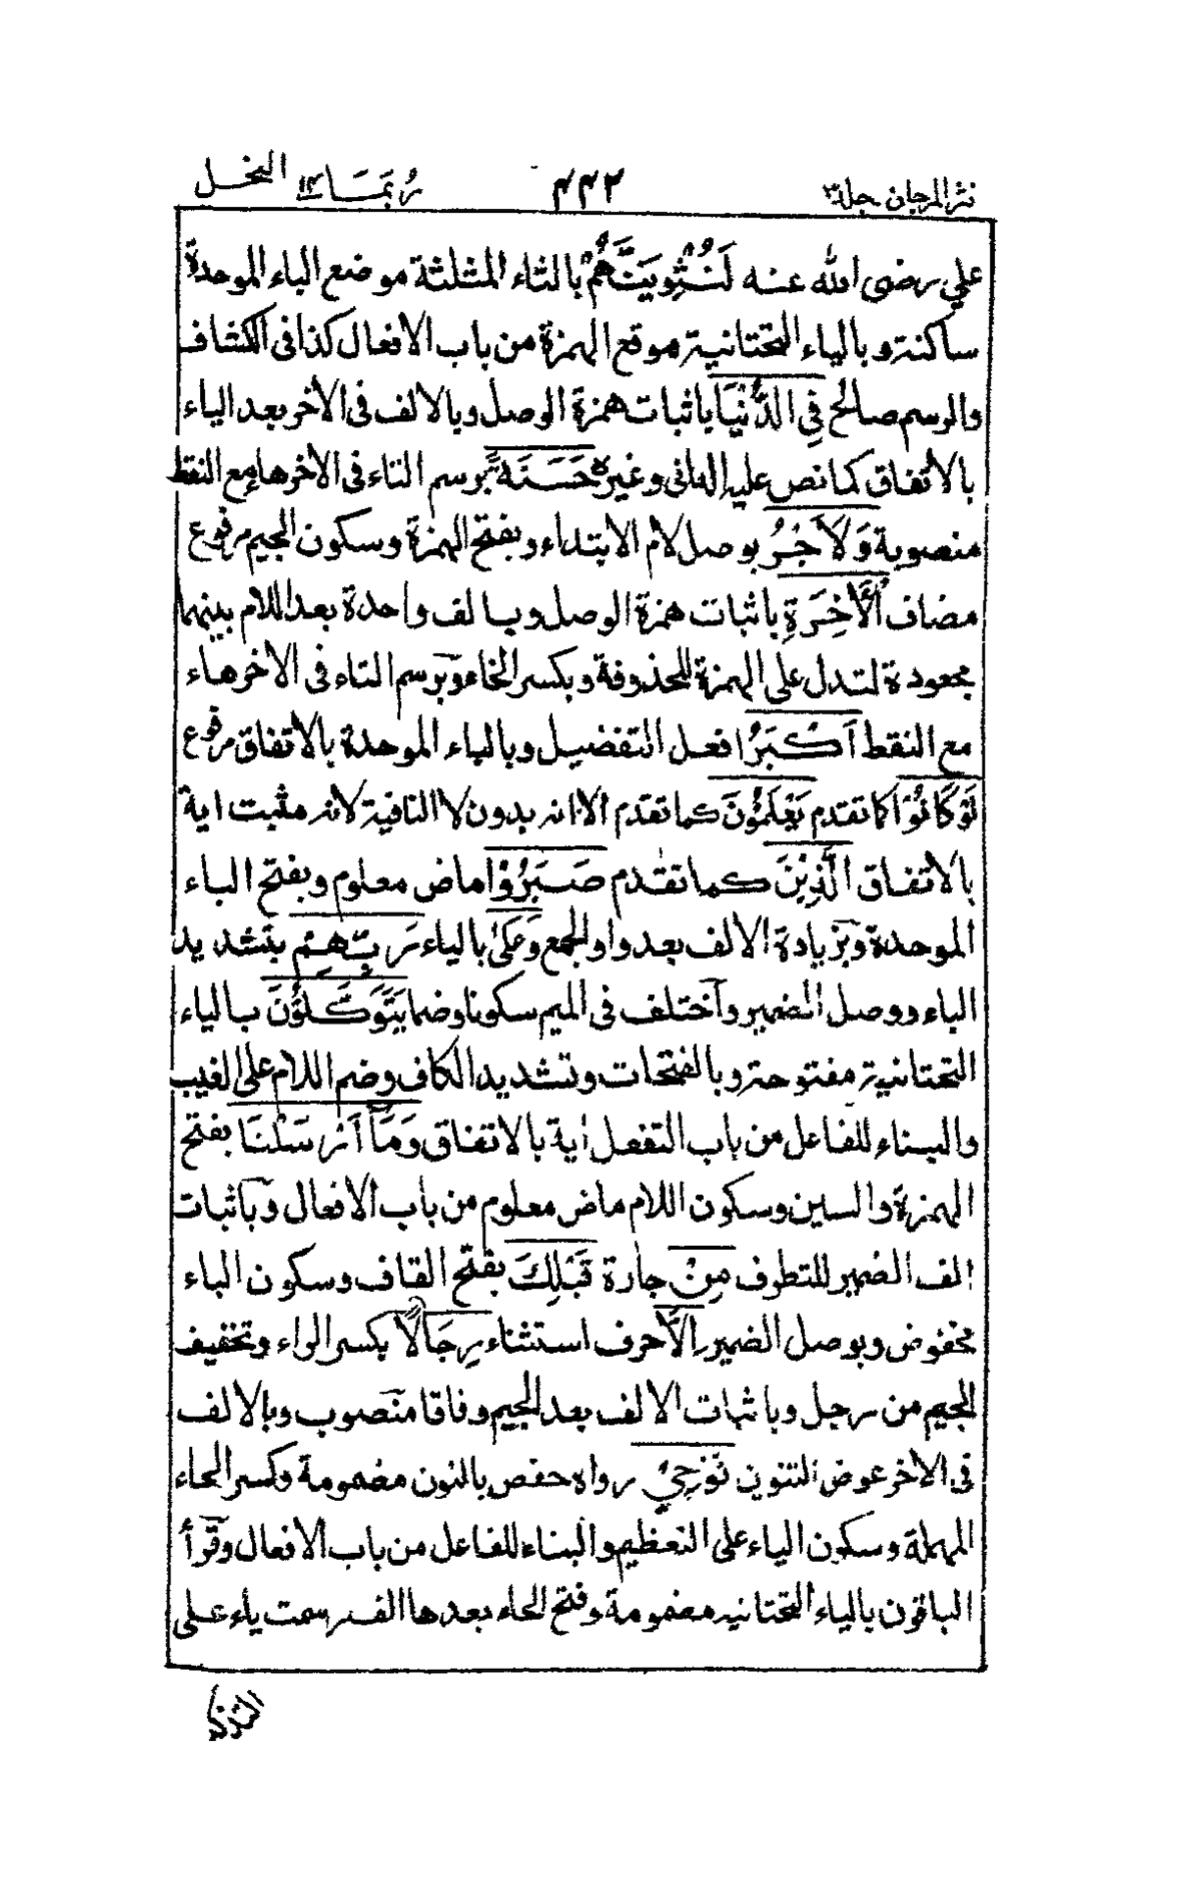 نثر المرجان جلد٣ ٤٤٢ رُبَمَا ١٤ النحل
علي رضي الله عنه لَنُثْوِيَنَّهُمْ بالثاء المثلثة موضع الباء الموحدة
ساكنة وبالياء التحتانية موقع الهمزة من باب الافعال كذا في الكشاف
والرسم صالح فِي الدُّنْيَا باثبات همزة الوصل وبالالف في الأخر بعد الياء
بالاتفاق كما نص عليه الداني وغيره حَسَنَةً برسم التاء في الاخر هاء مع النقط
منصوبة وَلَاَجْرُ بوصل لام الابتداء وبفتح الهمزة وسكون الجيم مرفوع
مضاف اُلْاٰخِرَةِ باثبات همزة الوصل وبالف واحدة بعد اللام بينهما
مجعودة لتدل على الهمزة المحذوفة وبكسر الخاء وبرسم التاء في الاخر هاء
مع النقط اَكْبَرُ افعل التفضيل وبالباء الموحدة بالاتفاق مرفوع
لَوْ كَانُوْا كما تقدم يَعْلَمُوْنَ كما تقدم الا انه بدون لا النافية لانه مثبت اية
بالاتفاق الَّذِيْنَ كما تقدم صَبَرُوْا ماض معلوم وبفتح الباء
الموحدة وبزيادة الالف بعد واو الجمع وَعَلٰى بالياء رَبِّهِمْ بتشديد
الباء ووصل الضمير وآختلف في الميم سكونا وضما يَتَوَكَّلُوْنَ بالياء
التحتانية مفتوحة وبالفتحات وتشديد الكاف وضم اللام على الغيب
والبناء للفاعل من باب التفعل اية بالاتفاق وَمَآ اَرْسَلْنَا بفتح
الهمزة والسين وسكون اللام ماض معلوم من باب الافعال وباثبات
الف الضمير للتطرف مِنْ جارة قَبْلِكَ بفتح القاف وسكون الباء
مخفوض وبوصل الضمير اِلَّا حرف استثناء رِجَالًا بكسر الراء وتخفيف
الجيم من رجل وباثبات الالف بعد الجيم وفاقا منصوب وبالالف
في الاخر عوض التنوين نُوْحِيْ رواه حفص بالنون مضمومة وكسر الحاء
المهملة وسكون الياء على التعظيم والبناء للفاعل من باب الافعال وقرأ
الباقون بالياء التحتانية مضمومة وفتح الحاء بعدها الف رسمت ياء على